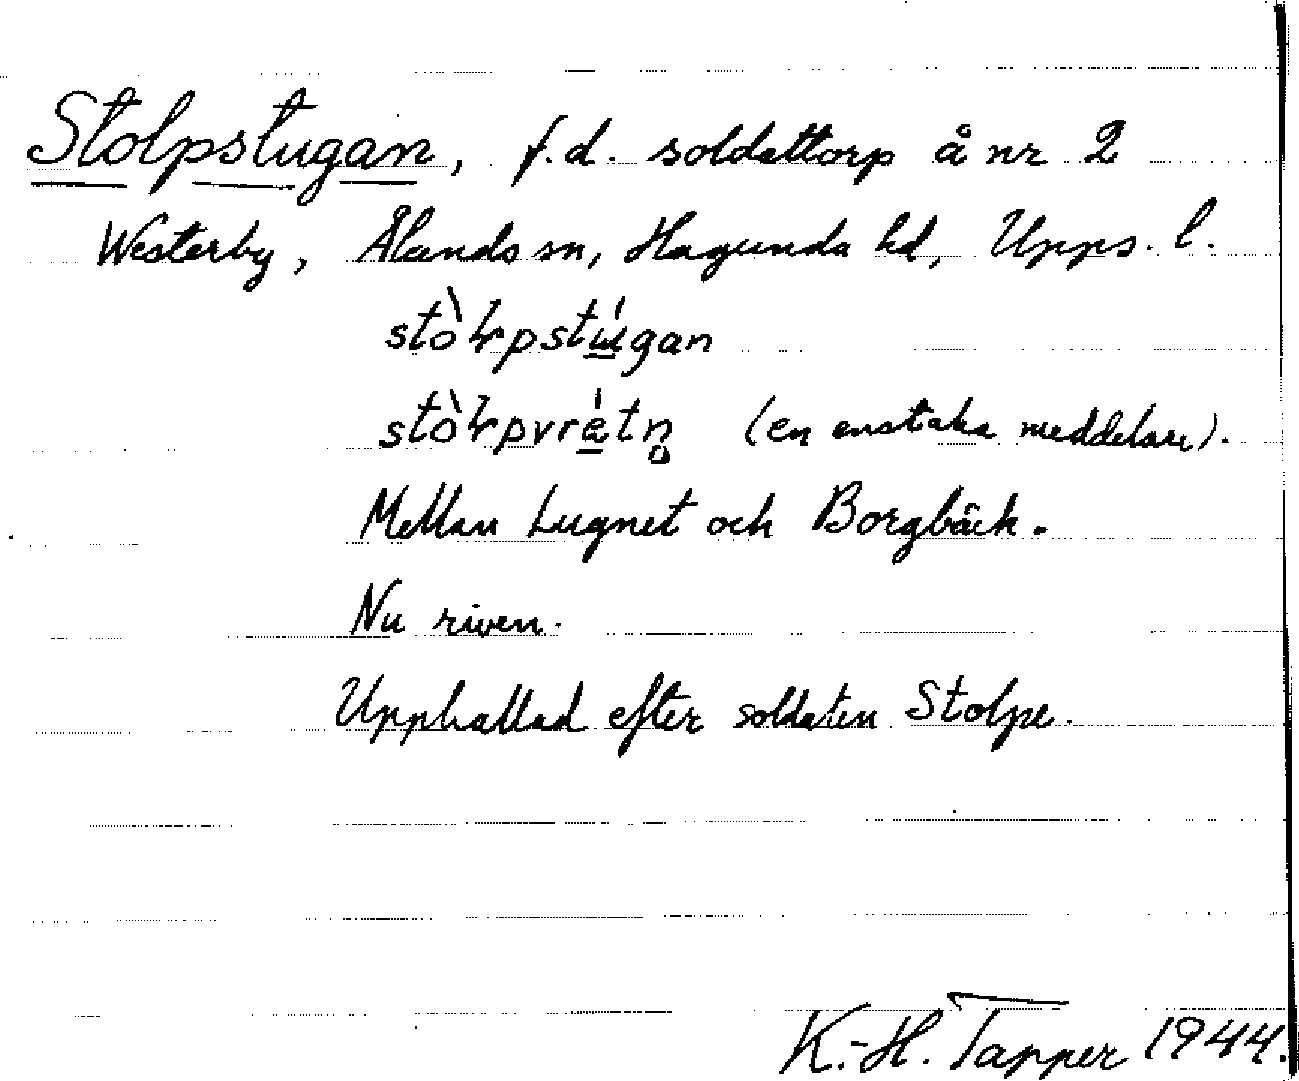 Stolpstugan, f.d. soldattorp å nr 2
Westerby, Ålands sn, Hagunda hd, Upps. l.
stòⱡpstɯ́gan
stòⱡpvrétn̥ (en enstaka meddelare).
Mellan Lugnet och Borgbäck.
Nu riven.
Uppkallad efter soldaten Stolpe.
K.-H. Tapper 1944.